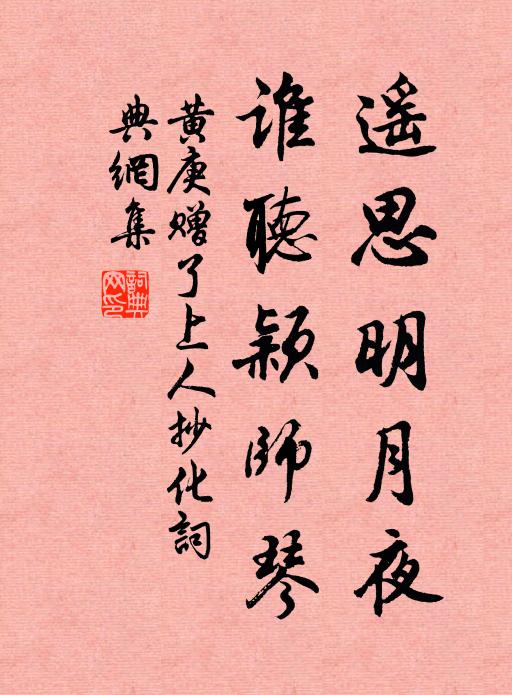 遥思明月夜
誰聽颖師琴
黃庚赠了上人抄化詞
典網集
詞典
网印